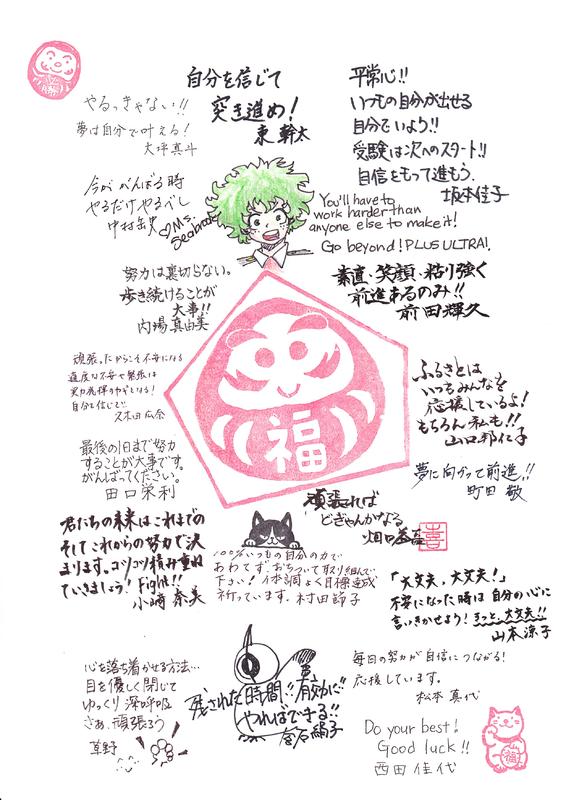 自分を信じて
突き進め！
東 幹太
平常心!!
いつもの自分が出せる
自分でいよう!!
受験は次へのスタート!!
自信をもって進もう.
坂本佳子
やるっきゃない!!
夢は自分で叶える！
大坪真斗
今が がんばる時
やるだけやるべし
中村
♡Ms.
Seabrook
You'll have to
work harder than
anyone else to make it!
Go beyond! PLUS ULTRA!.
努力は裏切らない。
歩き続けることが
大事!!
内場真由美
素直・笑顔・粘り強く
前進あるのみ!!
前田輝久
頑張ったからこそ不安になる
適度な不安や緊張は
実力発揮のカギとなる！
自分を信じて
久木田広奈
ふるさとは
いつもみんなを
応援しているよ！
もちろん私も!!
山口邦仁子
福
最後の1日まで努力
することが大事です。
がんばってください。
田口栄利
夢に向かって前進!!
町田 敬
頑張れば
どぎゃんかなる
畑口
喜
君たちの未来はこれまでの
そしてこれからの努力で決
まります。コツコツ積み重ね
ていきましょう！ Fight!!
小崎 奈美
100%いつもの自分の力で
あわてず、おちついて取り組んで
下さい！ 体調よく目標達成
祈っています. 村田節子
「大丈夫,大丈夫！」
不安になった時は 自分の心に
言いきかせよう！きっと、大丈夫!!
山本涼子
心を落ち着かせる方法…
目を優しく閉じて
ゆっくり 深呼吸
さぁ、頑張ろう
草野
残された時間!!有効に!!
やればできる!!
倉石絹子
毎日の努力が自信につながる！
応援しています。
松本 真代
Do your best!
Good luck!!
西田佳代
福